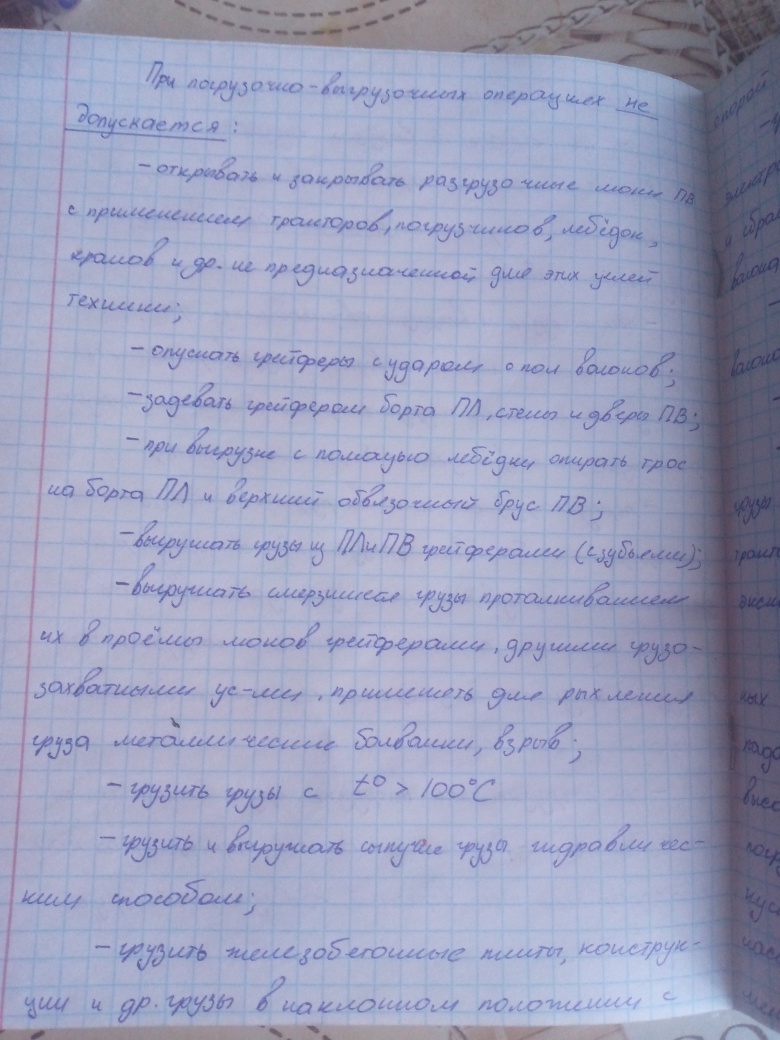 При погрузочно-выгрузочных операциях не
допускается:
- открывать и закрывать разгрузочные люки ПВ
с применением тракторов, погрузчиков, лебёдок,
кранов и др. не предназначенной для этих целей
техники;
- опускать грейферы с ударом о пол вагонов;
- задевать грейфером борта ПЛ, стены и двери ПВ;
- при выгрузке с помощью лебёдки опирать трос
на борта ПЛ и верхний обвязочный брус ПВ;
- выгружать грузы из ПЛ и ПВ грейферами (с зубьями);
- выгружать смерзшиеся грузы проталкиванием
их в проёмы люков грейферами, другими грузо-
захватными ус-ми, применять для рыхления
груза металлические болванки, взрыв;
- грузить грузы с t° > 100°С
- грузить и выгружать сыпучие грузы гидравличес-
ким способом;
- грузить железобетонные плиты, конструк-
ции и др. грузы в наклонном положении с